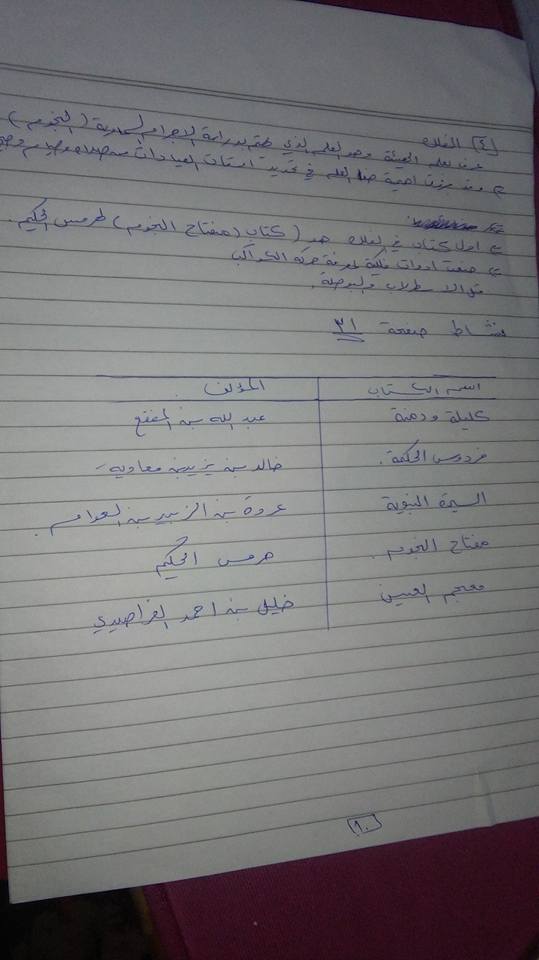 [٤] الفلك
عرف بعلم الهيئة وهو العلم الذي يهتم بدراسة الاجرام السماوية (النجوم)
وقد برزت اهمية هذا العلم في تحديد اوقات العبادات من صلاه وصيام وحج
اول كتاب في الفلك هو (كتاب (مفتاح النجوم) لهرمس الحكيم.
صنعت ادوات فلكية لمعرفة حركة الكواكب
مثل الاسطرلاب والبوصلة.
نشاط صفحة ٣١
اسم الكتاب المؤلف
كليلة ودمنة عبد الله بن المقفع
فردوس الحكمة. خالد بن يزيد بن معاويه
السيرة النبوية عروة بن الزبير بن العوام.
مفتاح النجوم. هرمس الحكيم
معجم العين خليل بن احمد الفراهيدي
١٠